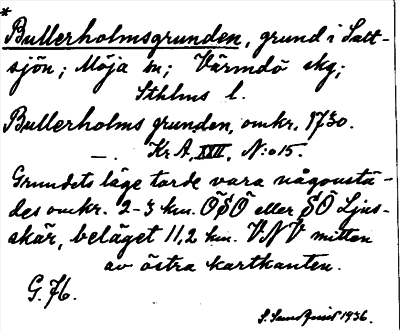 *
Bullerholmsgrunden, grund i Salt-
sjön; Möja sn; Värmdö skg;
Sthlms l.
Bullerholms grunden, omkr. 1730.
—. Kr. A, XVII, N:o 15.
Grundets läge torde vara någonstä-
des omkr. 2-3 km. ÖSÖ eller SÖ Ljus-
skär, beläget 11,2 km. VNV mitten
av östra kartkanten.
G. 76.
1936.